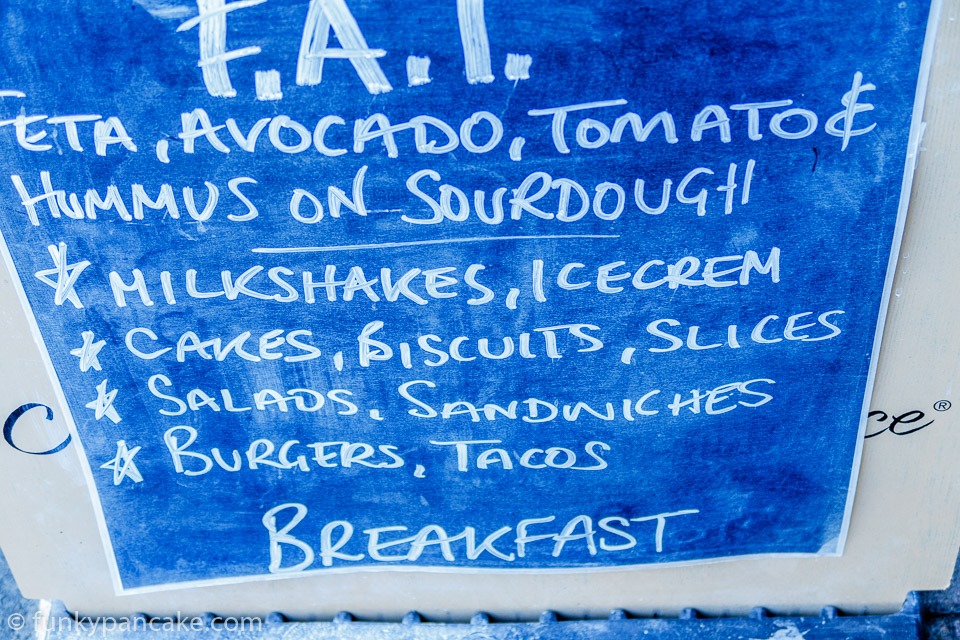 F.A.T.
FETA, AVOCADO, TOMATO &
HUMMUS ON SOURDOUGH
☆ MILKSHAKES, ICECREM
☆ CAKES, BISCUITS, SLICES
☆ SALADS, SANDWICHES
☆ BURGERS, TACOS
BREAKFAST
© funkypancake.com